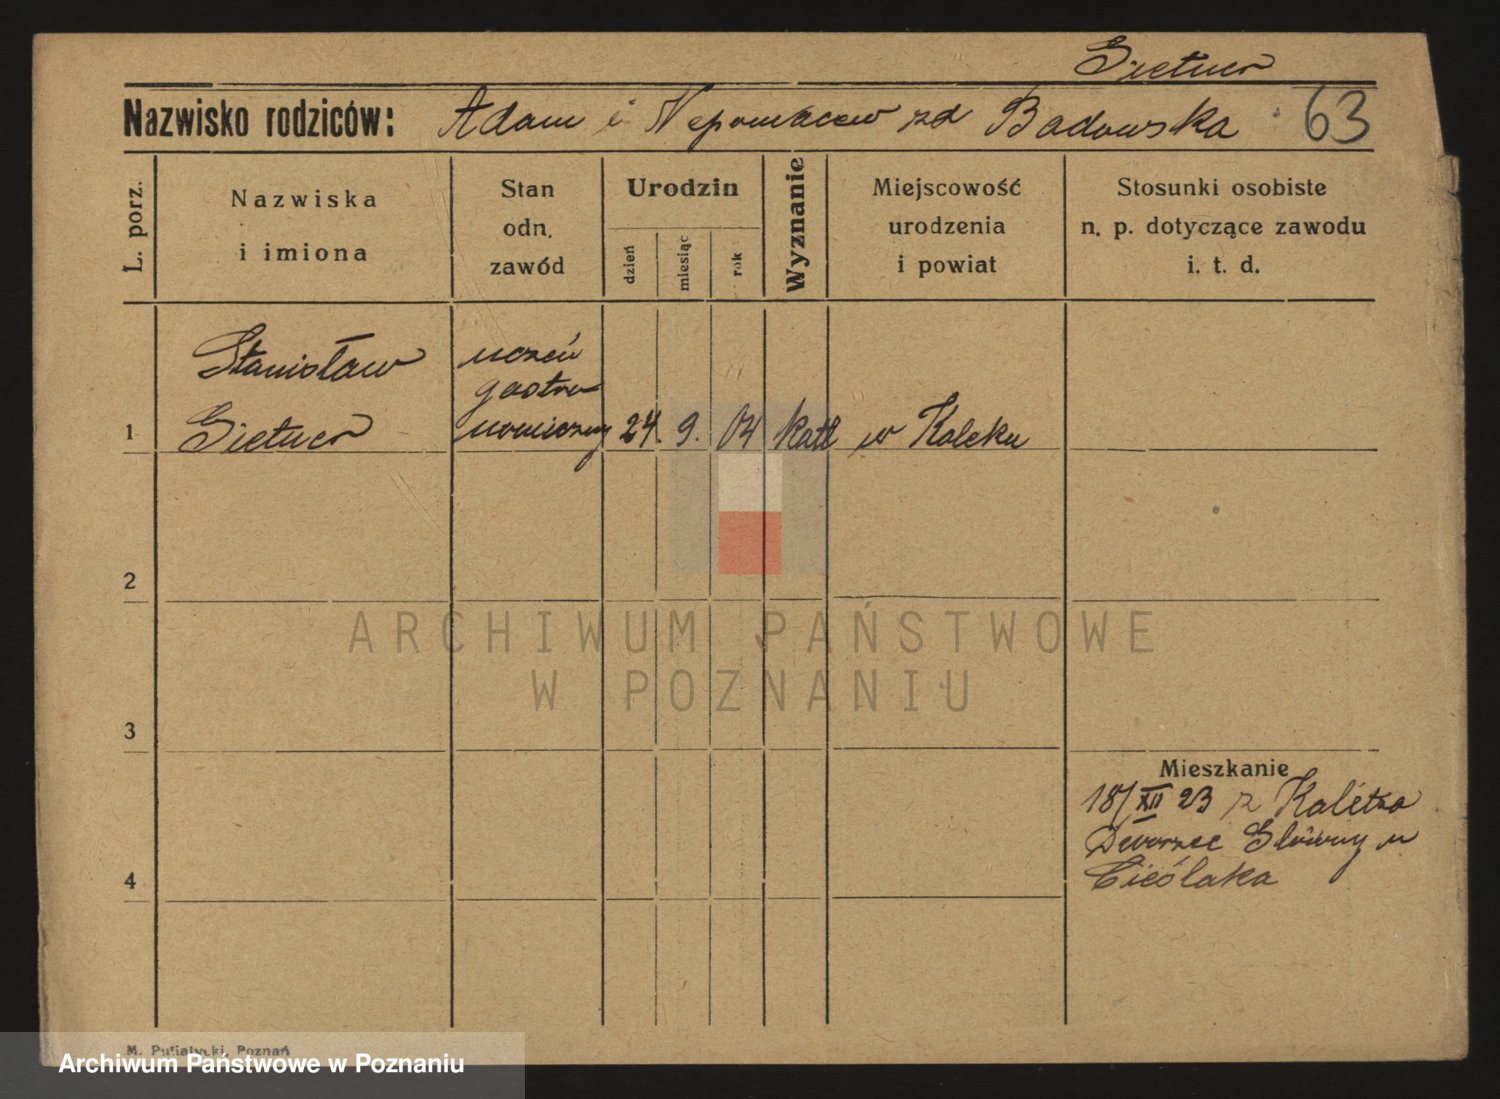 Gietner
Nazwisko rodziców: Adam i Nepomucen zd Badowska 63
L. porz.
Nazwiska
i imiona
Stan
odn.
zawód
Urodzin
dzień
miesiąc
rok
Wyznanie
Miejscowość
urodzenia
i powiat
Stosunki osobiste
n. p. dotyczące zawodu
i. t. d.
Stanisław
Gietner
uczeń
gastro-
nomiczny
1 24. 9. 04 katl w
2
3
4
Mieszkanie
18/XII 23 z
Dworzec Główny u
Cieślaka
ARCHIWUM PAŃSTWOWE
W POZNANIU
M. Putiatycki, Poznań
Archiwum Państwowe w Poznaniu